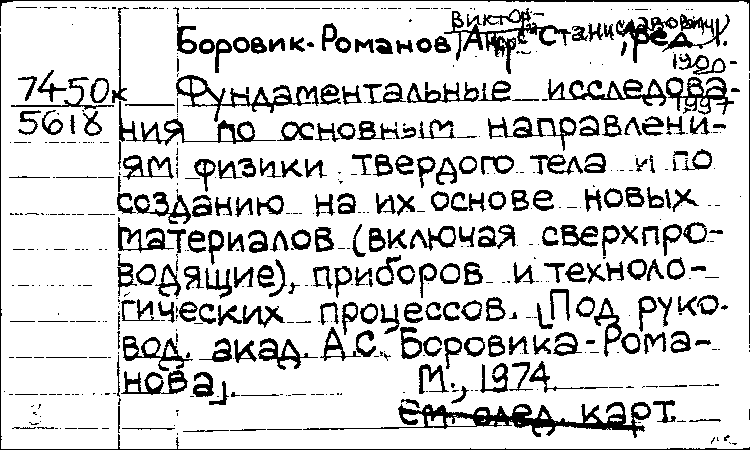 Виктор-
Боровик-Романов, Андрей Станиславович, ред.
1920-
74-50к Фундаментальные исследова-
1997
5618 ния по основным направлени-
ям физики твердого тела и по
созданию на их основе новых
материалов (включая сверхпро-
водящие), приборов и техноло-
гических процессов. [Под руко-
вод. акад. А.С. Боровика-Рома-
нова]. М., 1974.
См. след. карт.